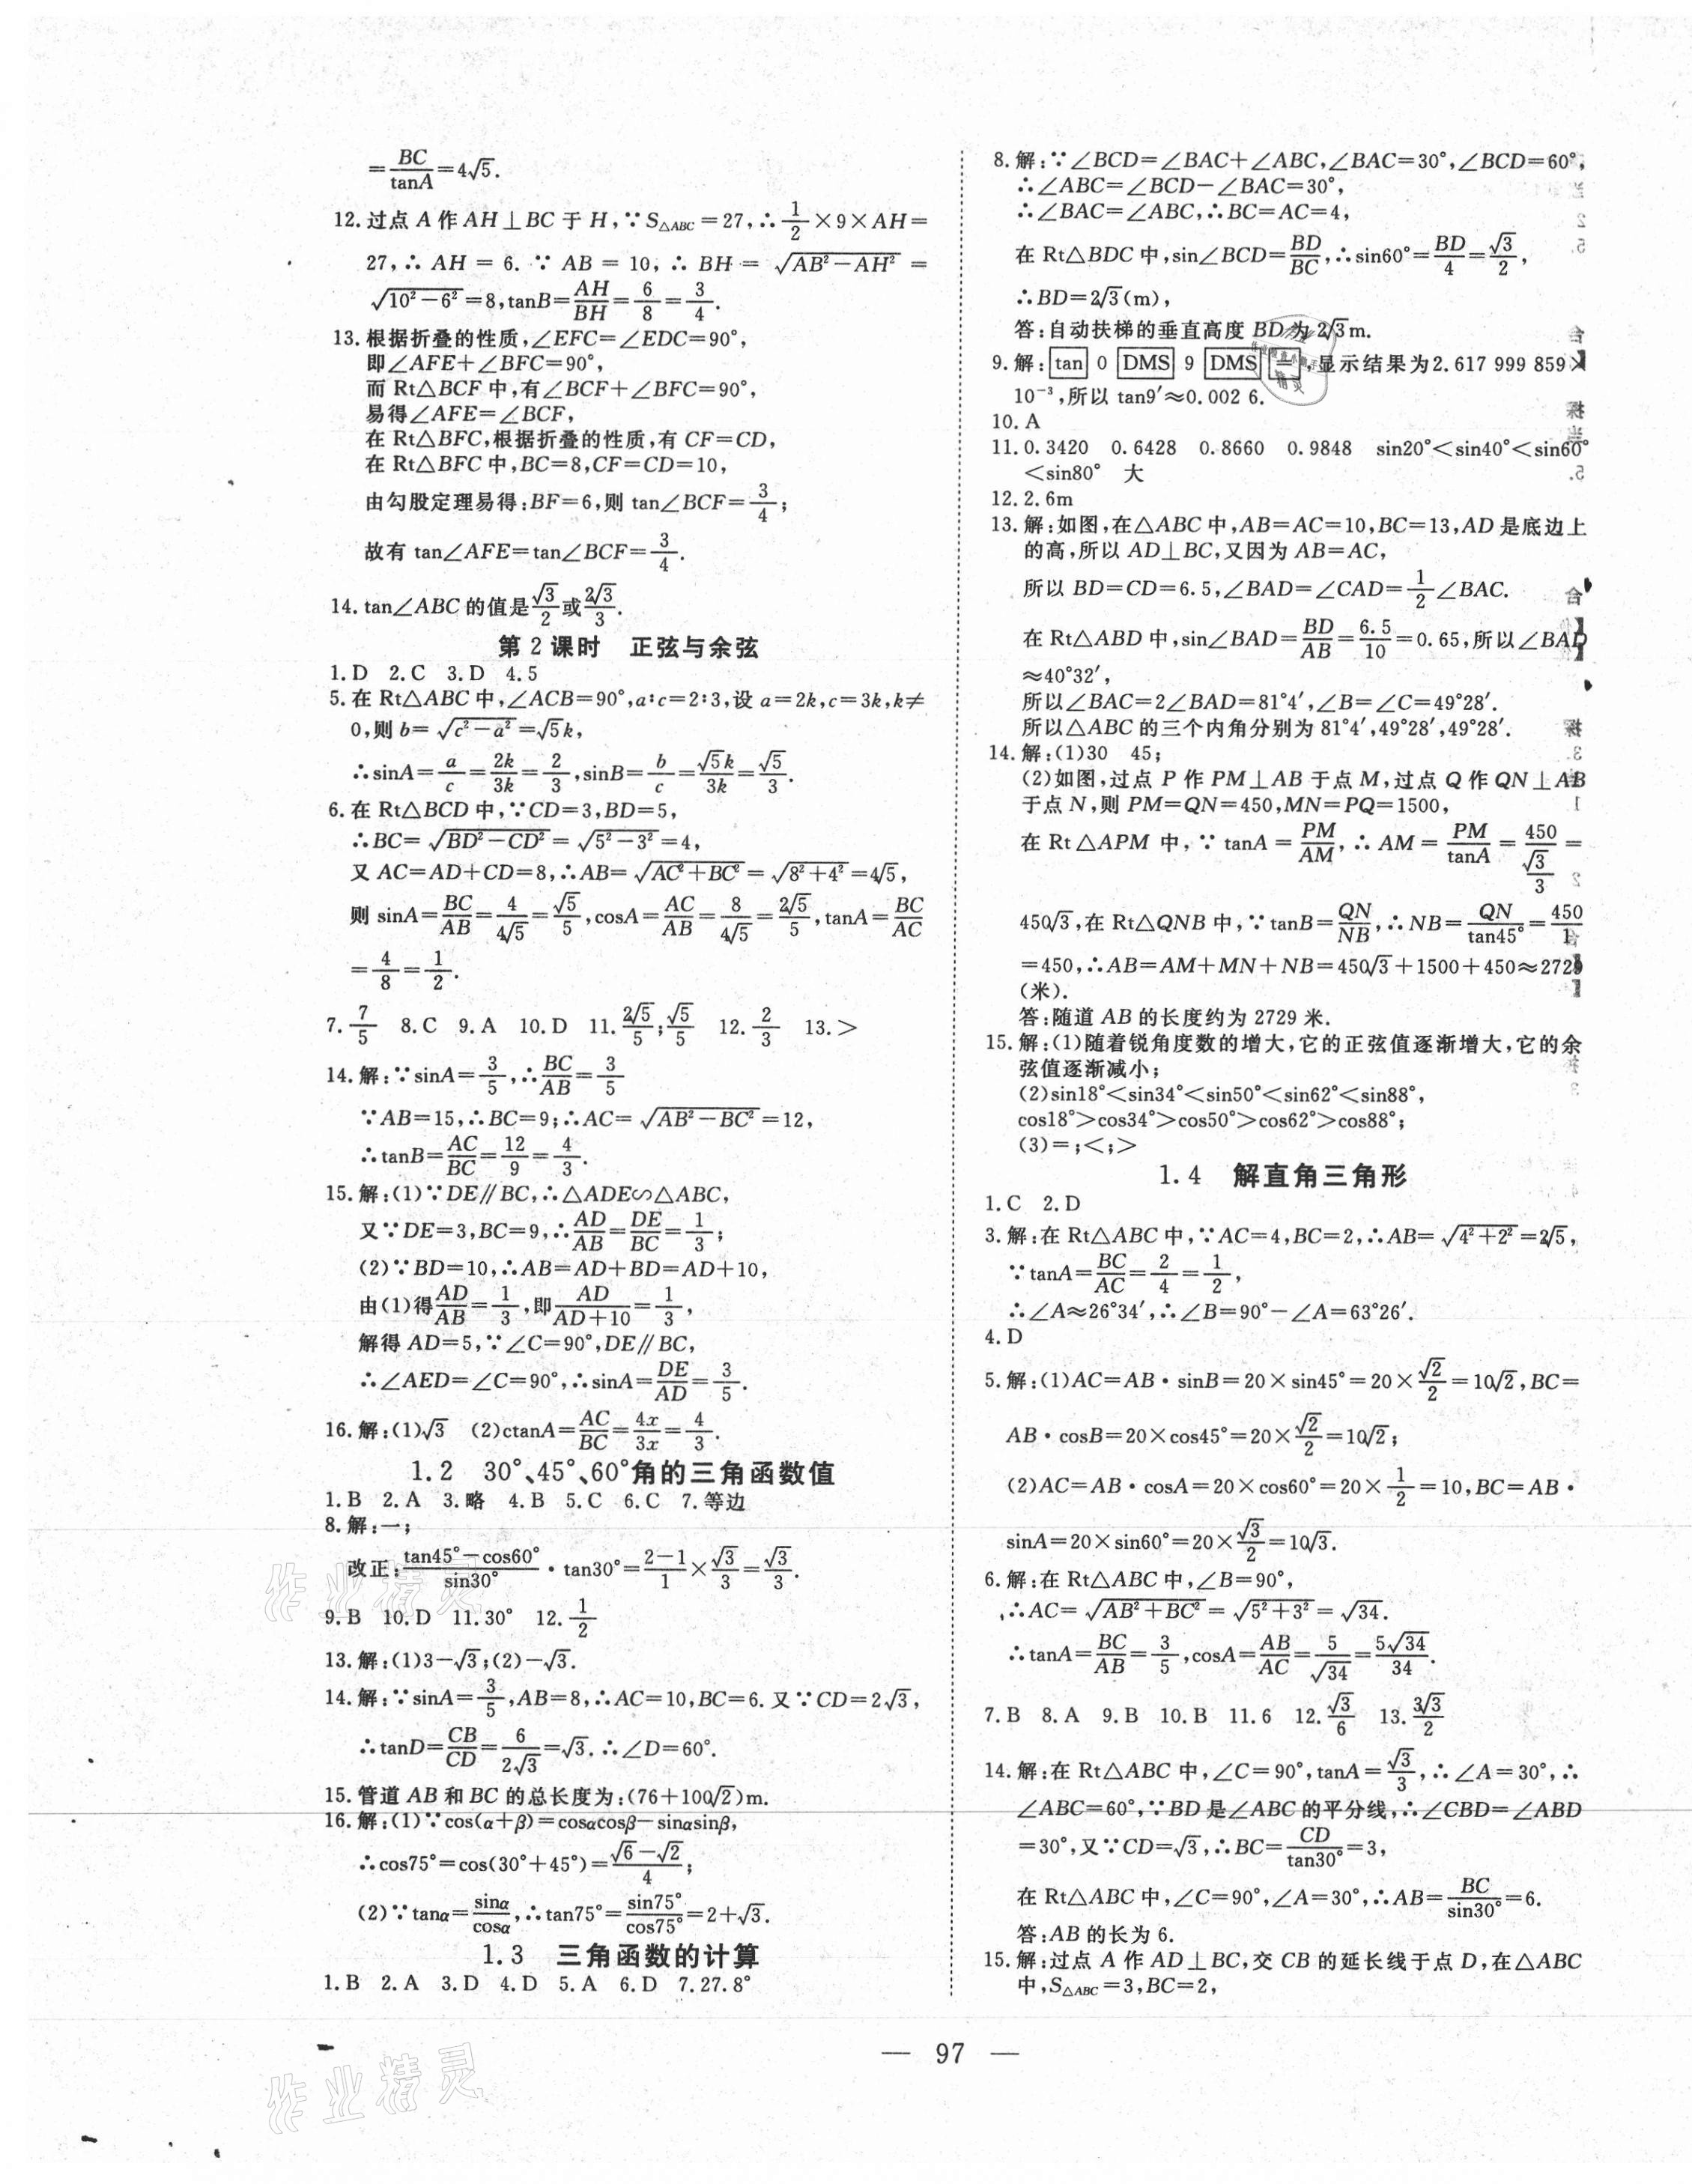 =BC/tanA=4√5.
12.过点 A 作 AH⊥BC 于 H,∵S△ABC=27,∴1/2×9×AH=
27,∴AH=6.∵AB=10,∴BH=√(AB²-AH²)=
√(10²-6²)=8,tanB=AH/BH=6/8=3/4.
13.根据折叠的性质,∠EFC=∠EDC=90°,
即∠AFE+∠BFC=90°,
而 Rt△BCF 中,有∠BCF+∠BFC=90°,
易得∠AFE=∠BCF,
在 Rt△BFC,根据折叠的性质,有 CF=CD,
在 Rt△BFC 中,BC=8,CF=CD=10,
由勾股定理易得:BF=6,则 tan∠BCF=3/4;
故有 tan∠AFE=tan∠BCF=3/4.
14.tan∠ABC 的值是√3/2或2√3/3.
第 2 课时 正弦与余弦
1.D 2.C 3.D 4.5
5.在 Rt△ABC 中,∠ACB=90°,a∶c=2∶3,设 a=2k,c=3k,k≠
0,则 b=√(c²-a²)=√5k,
∴sinA=a/c=2k/3k=2/3,sinB=b/c=√5k/3k=√5/3.
6.在 Rt△BCD 中,∵CD=3,BD=5,
∴BC=√(BD²-CD²)=√(5²-3²)=4,
又 AC=AD+CD=8,∴AB=√(AC²+BC²)=√(8²+4²)=4√5,
则 sinA=BC/AB=4/4√5=√5/5,cosA=AC/AB=8/4√5=2√5/5,tanA=BC/AC
=4/8=1/2.
7.7/5 8.C 9.A 10.D 11.2√5/5;√5/5 12.2/3 13.>
14.解:∵sinA=3/5,∴BC/AB=3/5
∵AB=15,∴BC=9;∴AC=√(AB²-BC²)=12,
∴tanB=AC/BC=12/9=4/3.
15.解:(1)∵DE∥BC,∴△ADE∽△ABC,
又∵DE=3,BC=9,∴AD/AB=DE/BC=1/3;
(2)∵BD=10,∴AB=AD+BD=AD+10,
由(1)得AD/AB=1/3,即AD/(AD+10)=1/3,
解得 AD=5,∵∠C=90°,DE∥BC,
∴∠AED=∠C=90°,∴sinA=DE/AD=3/5.
16.解:(1)√3 (2)ctanA=AC/BC=4x/3x=4/3.
1.2 30°、45°、60°角的三角函数值
1.B 2.A 3.略 4.B 5.C 6.C 7.等边
8.解:一;
改正:(tan45°-cos60°)/sin30°·tan30°=(2-1)/1×√3/3=√3/3.
9.B 10.D 11.30° 12.1/2
13.解:(1)3-√3;(2)-√3.
14.解:∵sinA=3/5,AB=8,∴AC=10,BC=6.又∵CD=2√3,
∴tanD=CB/CD=6/2√3=√3.∴∠D=60°.
15.管道 AB 和 BC 的总长度为:(76+100√2)m.
16.解:(1)∵cos(α+β)=cosαcosβ-sinαsinβ,
∴cos75°=cos(30°+45°)=(√6-√2)/4;
(2)∵tanα=sinα/cosα,∴tan75°=sin75°/cos75°=2+√3.
1.3 三角函数的计算
1.B 2.A 3.D 4.D 5.A 6.D 7.27.8°
8.解:∵∠BCD=∠BAC+∠ABC,∠BAC=30°,∠BCD=60°,
∴∠ABC=∠BCD-∠BAC=30°,
∴∠BAC=∠ABC,∴BC=AC=4,
在 Rt△BDC 中,sin∠BCD=BD/BC,∴sin60°=BD/4=√3/2,
∴BD=2√3(m),
答:自动扶梯的垂直高度 BD 为 2√3m.
9.解:tan 0 DMS 9 DMS =,显示结果为2.617 999 859×
10⁻³,所以 tan9′≈0.002 6.
10.A
11.0.3420 0.6428 0.8660 0.9848 sin20°<sin40°<sin60°
<sin80° 大
12.2.6m
13.解:如图,在△ABC 中,AB=AC=10,BC=13,AD 是底边上
的高,所以 AD⊥BC,又因为 AB=AC,
所以 BD=CD=6.5,∠BAD=∠CAD=1/2∠BAC.
在 Rt△ABD 中,sin∠BAD=BD/AB=6.5/10=0.65,所以∠BAD
≈40°32′,
所以∠BAC=2∠BAD=81°4′,∠B=∠C=49°28′.
所以△ABC 的三个内角分别为 81°4′,49°28′,49°28′.
14.解:(1)30 45;
(2)如图,过点 P 作 PM⊥AB 于点 M,过点 Q 作 QN⊥AB
于点 N,则 PM=QN=450,MN=PQ=1500,
在 Rt△APM 中,∵tanA=PM/AM,∴AM=PM/tanA=450/(√3/3)=
450√3,在 Rt△QNB 中,∵tanB=QN/NB,∴NB=QN/tan45°=450/1
=450,∴AB=AM+MN+NB=450√3+1500+450≈2729
(米).
答:随道 AB 的长度约为 2729 米.
15.解:(1)随着锐角度数的增大,它的正弦值逐渐增大,它的余
弦值逐渐减小;
(2)sin18°<sin34°<sin50°<sin62°<sin88°,
cos18°>cos34°>cos50°>cos62°>cos88°;
(3)=;<;>
1.4 解直角三角形
1.C 2.D
3.解:在 Rt△ABC 中,∵AC=4,BC=2,∴AB=√(4²+2²)=2√5,
∵tanA=BC/AC=2/4=1/2,
∴∠A≈26°34′,∴∠B=90°-∠A=63°26′.
4.D
5.解:(1)AC=AB·sinB=20×sin45°=20×√2/2=10√2,BC=
AB·cosB=20×cos45°=20×√2/2=10√2;
(2)AC=AB·cosA=20×cos60°=20×1/2=10,BC=AB·
sinA=20×sin60°=20×√3/2=10√3.
6.解:在 Rt△ABC 中,∠B=90°,
∴AC=√(AB²+BC²)=√(5²+3²)=√34.
∴tanA=BC/AB=3/5,cosA=AB/AC=5/√34=5√34/34.
7.B 8.A 9.B 10.B 11.6 12.√3/6 13.3√3/2
14.解:在 Rt△ABC 中,∠C=90°,tanA=√3/3,∴∠A=30°,∴
∠ABC=60°,∵BD 是∠ABC 的平分线,∴∠CBD=∠ABD
=30°,又∵CD=√3,∴BC=CD/tan30°=3,
在 Rt△ABC 中,∠C=90°,∠A=30°,∴AB=BC/sin30°=6.
答:AB 的长为 6.
15.解:过点 A 作 AD⊥BC,交 CB 的延长线于点 D,在△ABC
中,S△ABC=3,BC=2,
— 97 —
作业精灵
作业精灵